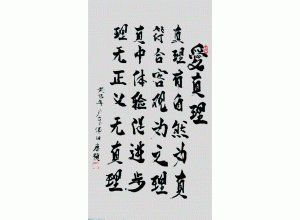 愛真理
真理有自然为真
符合客观为之理
真中体验促进步
理无正义无真理